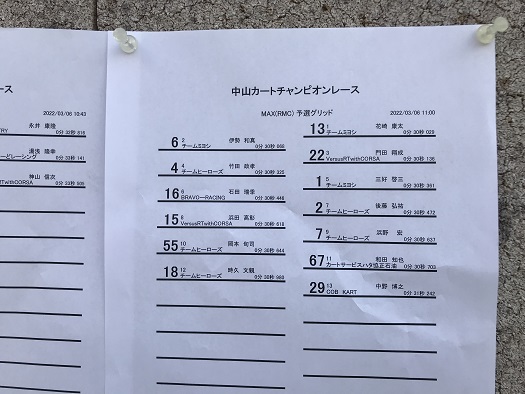 ース
2022/03/06 10:43
永井 康隆
0分 33秒 816
湯浅 隆幸
0分 33秒 141
神山 信次
RTwithCORSA 0分 33秒 909
中山カートチャンピオンレース
MAX(RMC) 予選グリッド
2022/03/06 11:00
13 1 花崎 康太
チームミヨシ 0分 30秒 029
6 2 伊勢 和真
チームミヨシ 0分 30秒 069
22 3 門田 翔成
VersusRTwithCORSA 0分 30秒 136
4 4 竹田 岐孝
チームヒーローズ 0分 30秒 325
1 5 三好 啓三
チームミヨシ 0分 30秒 361
16 6 石田 瑠季
BRAVO―RACING 0分 30秒 448
2 7 後藤 弘祐
チームヒーローズ 0分 30秒 472
15 8 浜田 高彰
VersusRTwithCORSA 0分 30秒 618
7 9 浜野 宏
チームヒーローズ 0分 30秒 637
55 10 岡本 旬司
チームヒーローズ 0分 30秒 644
67 11 和田 知也
カートサービスハタ協正石油 0分 30秒 703
18 12 時久 文観
チームヒーローズ 0分 30秒 980
29 13 中野 博之
COB KART 0分 31秒 242